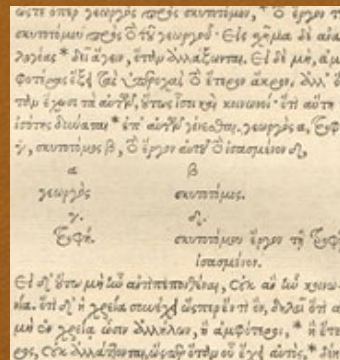 ὥστε ὅπερ γεωργὸς πρὸς σκυτοτόμον, * τὸ ἔργον τοῦ
σκυτοτόμου πρὸς τὸ τοῦ γεωργοῦ. Εἰς σχῆμα δὲ ἀνα
λογίας * δεῖ ἄγειν, ὅταν ἀλλάξωνται. Εἰ δὲ μὴ, ἀμ
φοτέρας ἕξει τὰς ὑπεροχὰς τὸ ἕτερον ἄκρον. ἀλλ' ὅ
ταν ἔχωσι τὰ αὑτῶν, οὕτως ἴσοι καὶ κοινωνοί· ὅτι αὕτη ἡ
ἰσότης δύναται * ἐπ' αὐτῶν γίνεσθαι. γεωργὸς α, τροφὴ
γ, σκυτοτόμος β, τὸ ἔργον αὐτοῦ τὸ ἰσασμένον δ,
α β
γεωργὸς σκυτοτόμος.
γ. δ.
τροφή. σκυτοτόμου ἔργον τῇ τροφῇ
ἰσασμένον.
Εἰ δ' οὕτω μὴ ἦν ἀντιπεπονθέναι, οὐκ ἂν ἦν κοινω
νία. ὅτι δ' ἡ χρεία συνέχει ὥσπερ ἕν τι ὂν, δηλοῖ ὅτι ὅταν
μὴ ἐν χρείᾳ ὦσιν ἀλλήλων, ἢ ἀμφότεροι, * ἢ ἅτε
ρος, οὐκ ἀλλάττονται, ὥσπερ ὅταν οὗ ἔχει αὐτὸς, * δέη